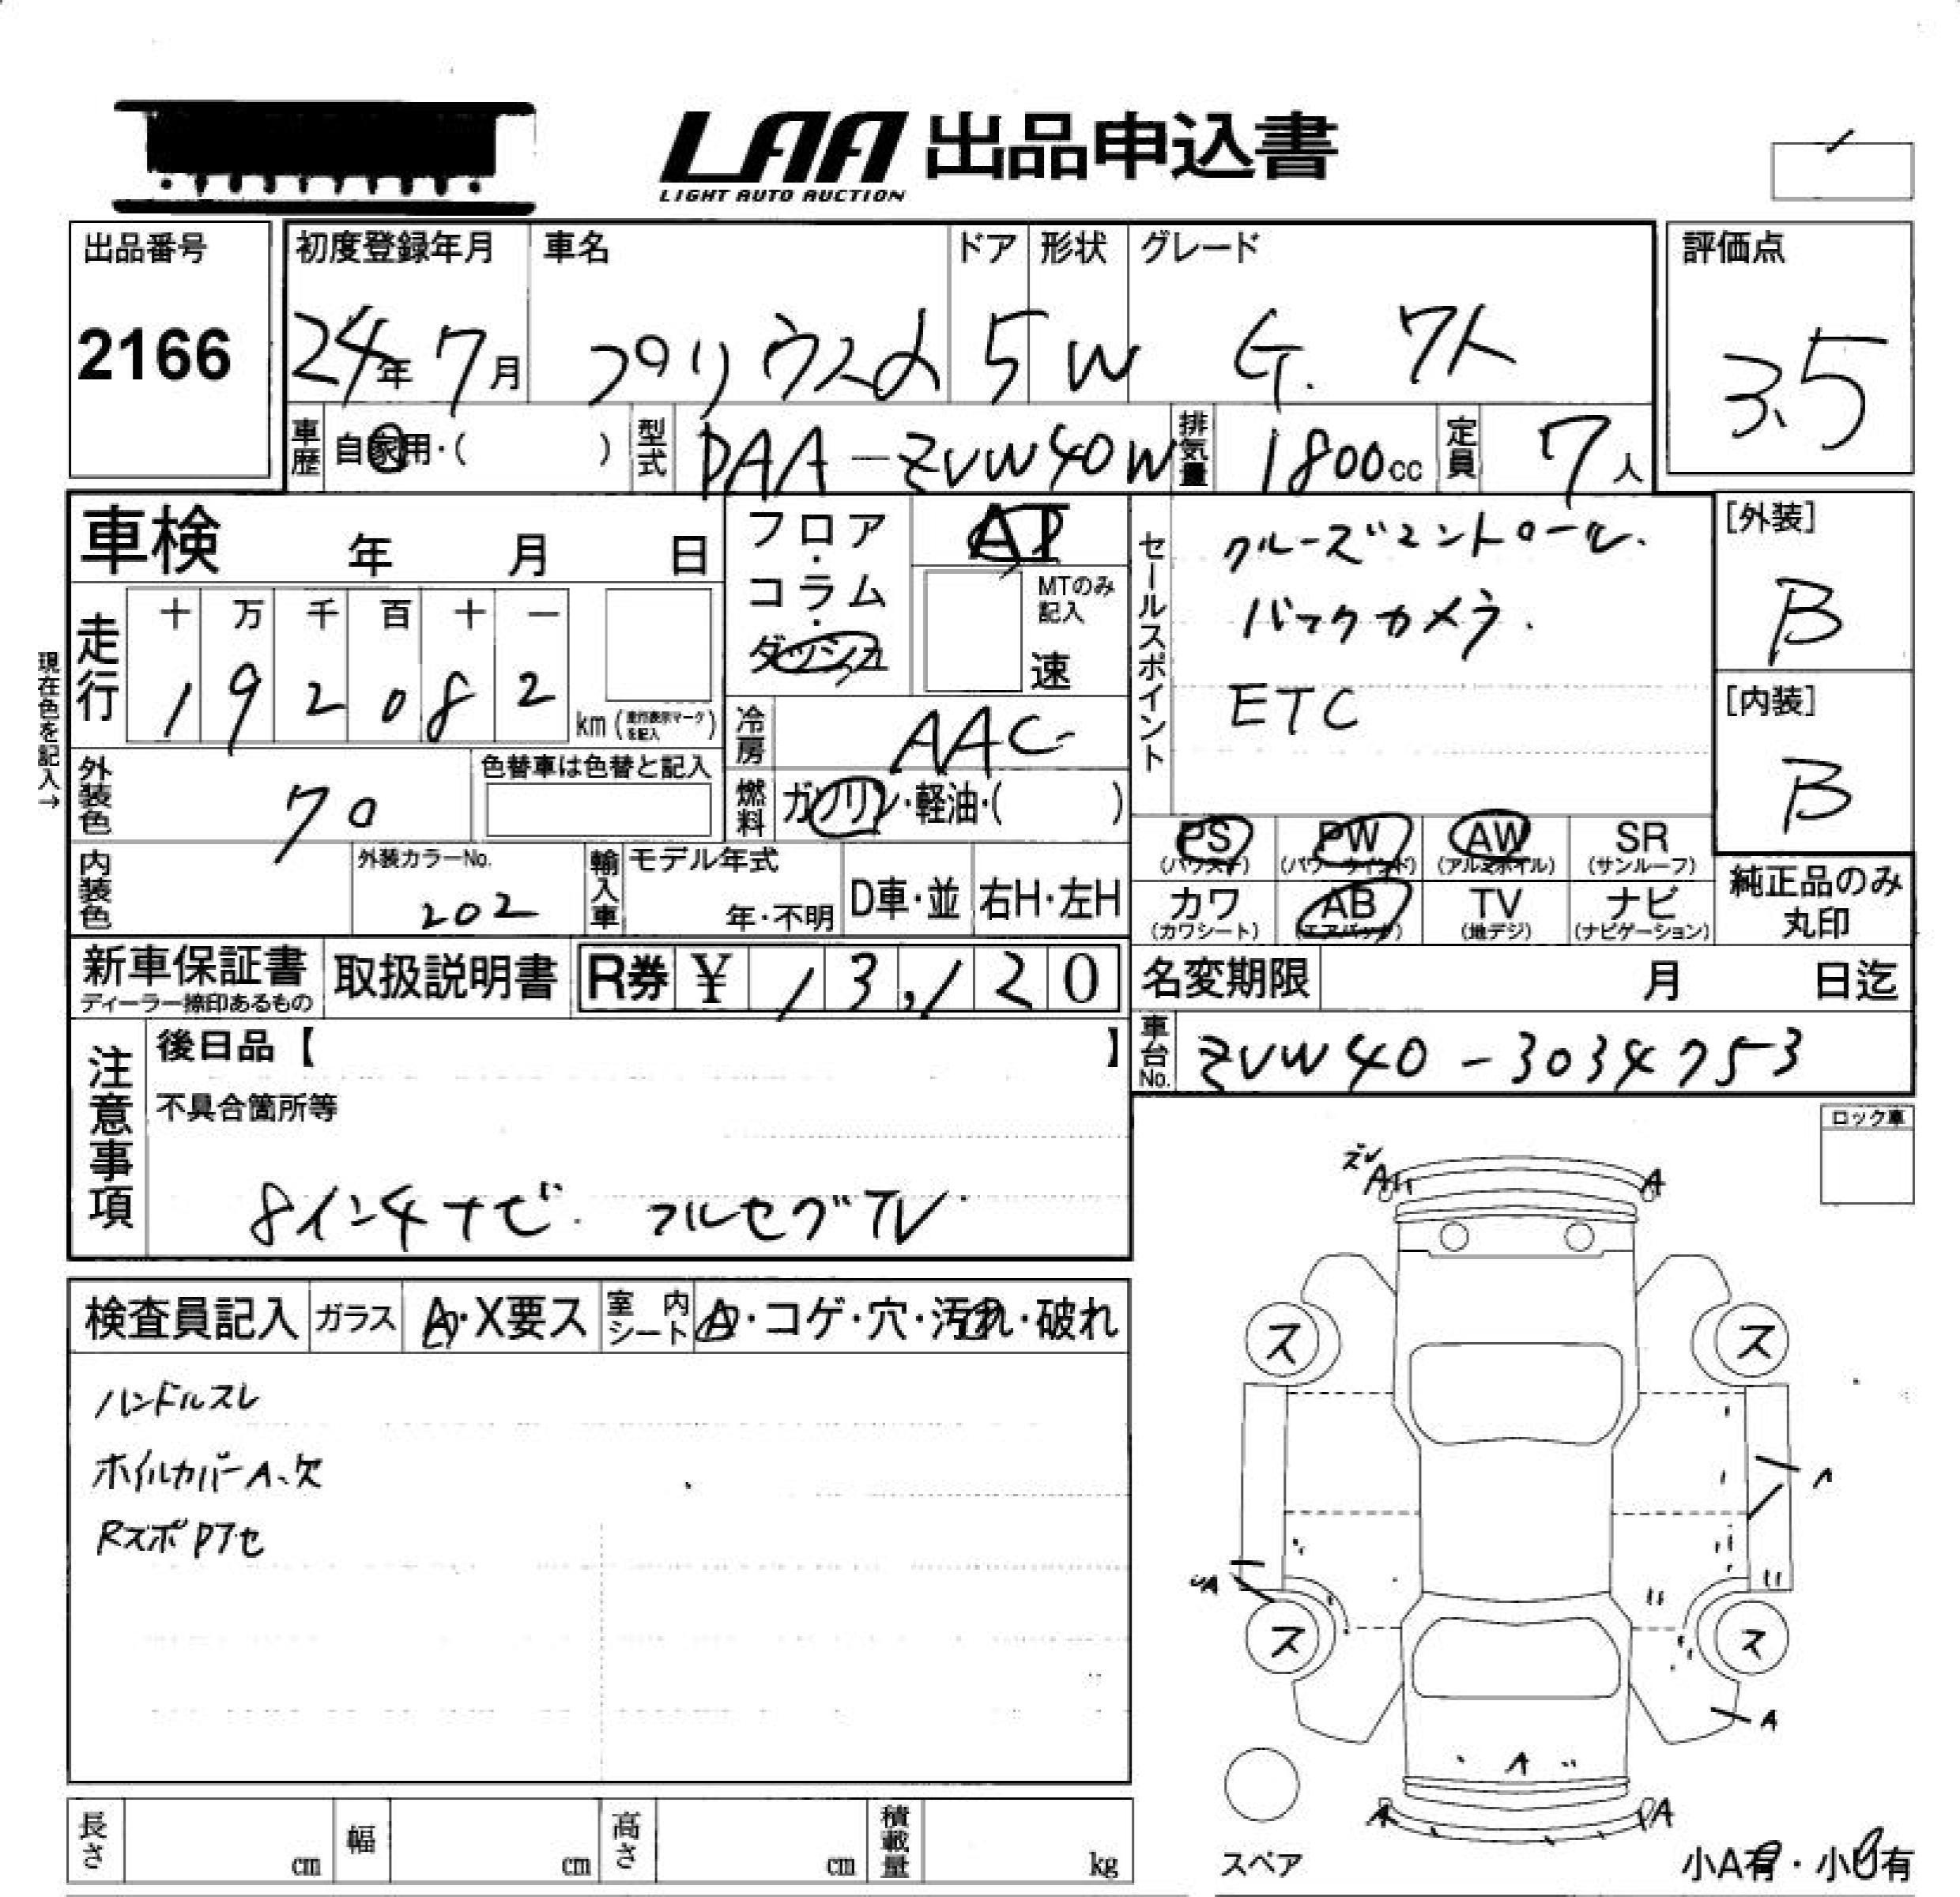 LAA 出品申込書
LIGHT AUTO AUCTION
出品番号
2166
初度登録年月
24年 7月
車名
プリウスα
ドア
5
形状
W
グレード
G. 7人
評価点
3.5
車歴
自家用・( )
型式
DAA-ZVW40W
排気量
1800cc
定員
7人
車検 年 月 日
フロア・コラム・ダッシュ
AT
MTのみ記入
速
セールスポイント
クルーズコントロール.
バックカメラ.
ETC
[外装]
B
[内装]
B
現在色を記入→
走行
十 万 千 百 十 一
1 9 2 0 8 2
km (走行表示マークを記入)
冷房
AAC
外装色
色替車は色替と記入
燃料
ガソリン・軽油・( )
PS (パワステ)
PW (パワーウインド)
AW (アルミホイル)
SR (サンルーフ)
内装色
外装カラーNo.
202
輸入車
モデル年式
年・不明
D車・並
右H・左H
カワ (カワシート)
AB (エアバック)
TV (地デジ)
ナビ (ナビゲーション)
純正品のみ丸印
新車保証書
ディーラー捺印あるもの
取扱説明書
R券 ¥ 13,120
名変期限 月 日迄
車台No.
ZVW40-3034753
注意事項
後日品【 】
不具合箇所等
8インチナビ. フルセグTV.
ロック車
検査員記入
ガラス
A・X要ス
室内シート
A・コゲ・穴・汚れ・破れ
ハンドルスレ
ホイルカバーA、欠
RズポPアセ
A A
ス ス
A
A
ス ス
A
A
A A
スペア
小A有・小U有
長さ cm
幅 cm
高さ cm
積載量 kg